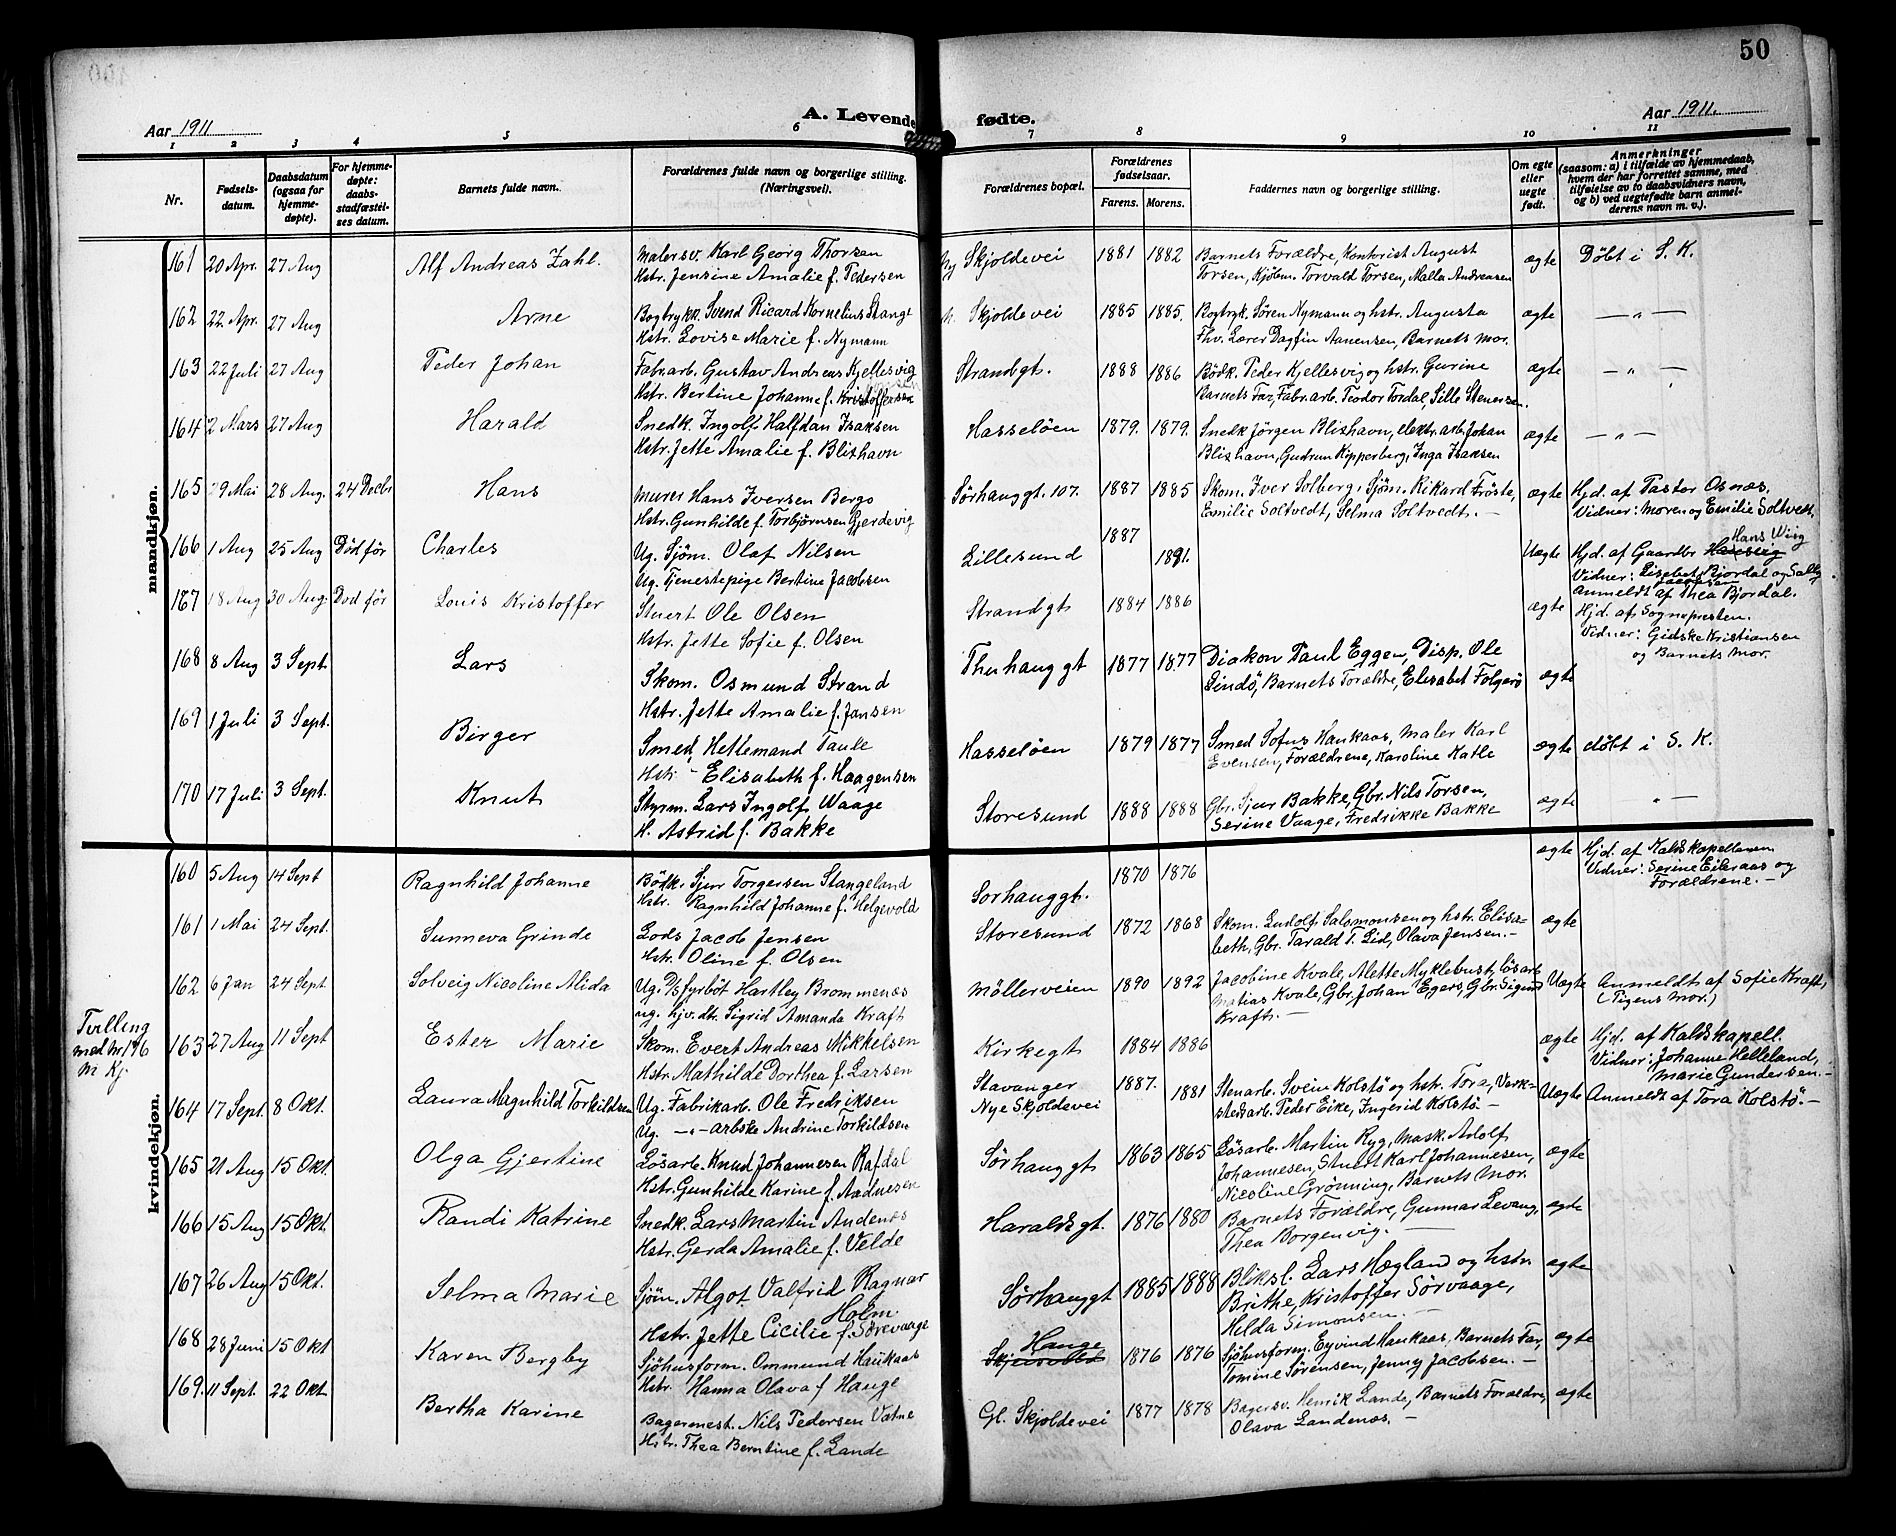 50
A. Levende fødte.
Aar 1911
Aar 1911.
1 2 3 4 5 6 7 8 9 10 11
Nr.
Fødsels-
datum.
Daabsdatum
(ogsaa for
hjemme-
døpte).
For hjemme-
døpte:
daabs-
stadfæstel-
ses datum.
Barnets fulde navn.
Forældrenes fulde navn og borgerlige stilling.
(Næringsvei).
Forældrenes bopæl.
Forældrenes
fødselsaar.
Farens. Morens.
Faddernes navn og borgerlige stilling.
Om egte
eller
uegte
født.
Anmerkninger
(saasom: a) i tilfælde av hjemmedaab,
hvem der har forrettet samme, med
tilføielse av to daabsvidners navn,
og b) ved uegtefødte barn anmel-
derens navn m. v.).
mandkjøn.
161 20 Apr. 27 Aug Alf Andreas Zahl. Malersv. Karl Georg Thorsen Ny Skjoldevei 1881 1882 Barnets Forældre, Kontorist August ægte Døbt i S. K.
Hstr. Jensine Amalie f. Pedersen Torsen, Kjøbm. Torvald Torsen, Malla Andreasen
162 22 Apr. 27 Aug Arne Bogtrykk. Svend Ricard Kornelius Stangt N. Skjoldevei 1885 1885. Bogtryk. Søren Nymann og hstr. Augusta ægte — „ —
Hstr. Lovise Marie f. Nymann Thv. Lærer Dagfin Aanensen, Barnets Mor.
163 22 Juli 27 Aug Peder Johan Fabr.arb. Gustav Andreas Kjellesvig Strandgt. 1888 1886 Bødk. Peder Kjellesvig og hstr. Gurine ægte — „ —
Hstr. Bertine Johanne f. Kristoffersen Barnets Far, Fabr.arb. Teodor Tordal, Sille Stenersen.
164 2 Mars 27 Aug Harald Snedk. Ingolf Halfdan Isaksen Hasseløen 1879. 1879. Snedk Jørgen Blixhavn, elektr. arb. Johan ægte — „ —
Hstr. Jette Amalie f. Blixhavn Blixhavn, Gudrun Kipperberg, Inga Isaksen
165 29 Mai 28 Aug. 24 Decbr Hans Murer Hans Iversen Bergo Sørhauggt. 107. 1887 1885 Skom. Iver Solberg, Sjøm. Rikard Frøste, ægte Hjd. af Pastor Osnæs,
Hstr. Gunhilde f. Torbjørnsen Gjerdevig Emilie Soltvedt, Selma Soltvedt. — Vidner: Moren og Emilie Soltvedt.
166 1 Aug 25 Aug Død før Charles Ug. Sjøm. Olaf Nilsen Lillesund 1887 1891. Uægte Hjd. af Gaardbr Hans Wiig
Ug. Tjenestepige Bertine Jacobsen Vidner: Lisebet Bjordal og Sally
Jacobsen
Anmeldt af Thea Bjordal.
167 18 Aug 30 Aug. Død før Louis Kristoffer Stuert Ole Olsen Strandgt 1884 1886 ægte Hjd. af Sognepresten.
Hstr. Jette Sofie f. Olsen Vidner: Gidske Kristiansen
og Barnets Mor.
168 8 Aug 3 Sept. Lars Skom. Osmund Strand Thuhauggt 1877 1877 Diakon Paul Eggen, Disp. Ole ægte
Hstr. Jette Amalie f. Jansen Lindö, Barnets Forældre, Elisabet Folgerö
169 1 Juli 3 Sept. Birger Smed, Hettemand Taule Hasseløen 1879 1877 Smed Sofus Haukaas, Maler Karl ægte døbt i S. K.
Hstr - Elisabeth f. Haagensen Evensen, Forældrene, Karoline Katle
170 17 Juli 3 Sept. Knut Styrm. Lars Ingolf Waage Storesund 1888 1888 Gbr. Sjur Bakke, Gbr. Nils Torsen, ægte „ —
H. Astrid f. Bakke Serine Vaage, Fredrikke Bakke
kvindekjøn.
160 5 Aug 14 Sept Ragnhild Johanne Bødk. Sjur Torgersen Stangeland Sorhauggt. 1870 1876 ægte Hjd. af Kaldskapellanen
Hstr. Ragnhild Johanne f. Helgevold Vidner: Serine Eileraas og
Forældrene. —
161 1 Mai 24 Sept. Sunneva Grinde Lods Jacob Jensen Storesund 1872 1868 Skom. Ludolf Salomonsen og hstr. Elisa- ægte
Hstr. Oline f. Olsen beth, Gbr. Tarald T. Lid, Olava Jensen. —
162 6 Jan 24 Sept Solveig Nicoline Alida Ug. D/s fyrböt Hartley Brommenæs Møllerveien 1890 1892 Jacobine Kvale, Alette Myklebust, løsarb Uægte Anmeldt af Sofie Kraft,
ug. hjv. dtr. Sigrid Amanda Kraft Matias Kvale, Gbr. Johan Egers, Gbr. Sigurd (Pigens Mor.)
Kraft. —
Tvilling
med Nr 176
M Kj
163 27 Aug 11 Sept Ester Marie Skom. Evert Andreas Mikkelsen Kirkegt 1884 1886 ægte Hjd. af Kaldskapell.
Hstr. Mathilde Dorthea f. Larsen Vidner: Johanne Helleland,
Marie Gundersen. —
164 17 Sept. 8 Okt. Laura Magnhild Torkildsen Ug. Fabrikarb. Ole Fredriksen Stavanger 1887. 1881 Stenarb. Svein Kolstø og hstr. Tora, Verk- Uægte Anmeldt af Tora Kolstø. —
Ug. — „ — arbske Andrine Torkildsen Nye Skjoldevei stedsarb. Peder Eike, Ingerid Kolstø. —
165 21 Aug 15 Okt Olga Gjertine Løsarb. Knud Johannesen Rafdal Sørhauggt 1863 1865 Løsarb. Martin Ryg, Mask. Adolf ægte
Hstr. Gunhilde Karine f. Aadnesen Johannesen, Stuert Karl Johannesen,
Nicoline Grønning, Barnets Mor.
166 15 Aug 15 Okt. Randi Katrine Snedk. Lars Martin Andenæs Haraldsgt. 1876 1880 Barnets Forældre, Gunnar Levang, ægte
Hstr. Gerda Amalie f. Velde Thea Borgenvig. —
167 26 Aug 15 Okt. Selma Marie Sjöm. Algot Valfrid Ragnar Sørhauggt 1885 1888 Bliksl. Lars Hægland og hstr ægte
Holm
Hstr. Jette Cicilie f. Sørevaage Brithe, Kristoffer Sørvaage,
Hilda Simonsen. —
168 28 Juni 15 Okt Karen Bergby Sjöhusform. Ommund Haukaas Hauge 1876 1876 Sjöhusform. Eyvind Haukaas, Barnets Far, ægte
Hstr. Hanna Olava f Hauge Tomine Sørensen, Jenny Jacobsen. —
169. 11 Sept. 22 Okt Bertha Karine Bagermest. Nils Pedersen Vatne Gl. Skjoldevei 1877 1878 Bagersv. Henrik Lande, Barnets Forældre, ægte
Hstr. Thea Berntine f. Lande Olava Landenæs. —